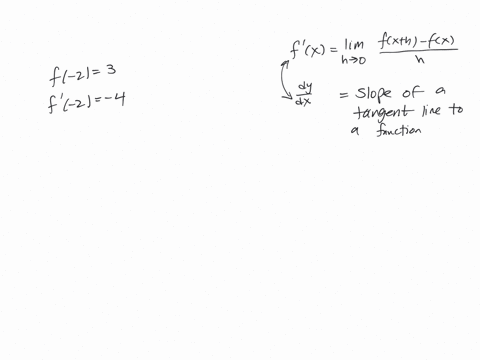 f(-2) = 3
f'(-2) = -4
f'(x) = lim h→0 f(x+h) - f(x) / h
dy/dx = slope of a
tangent line to
a function